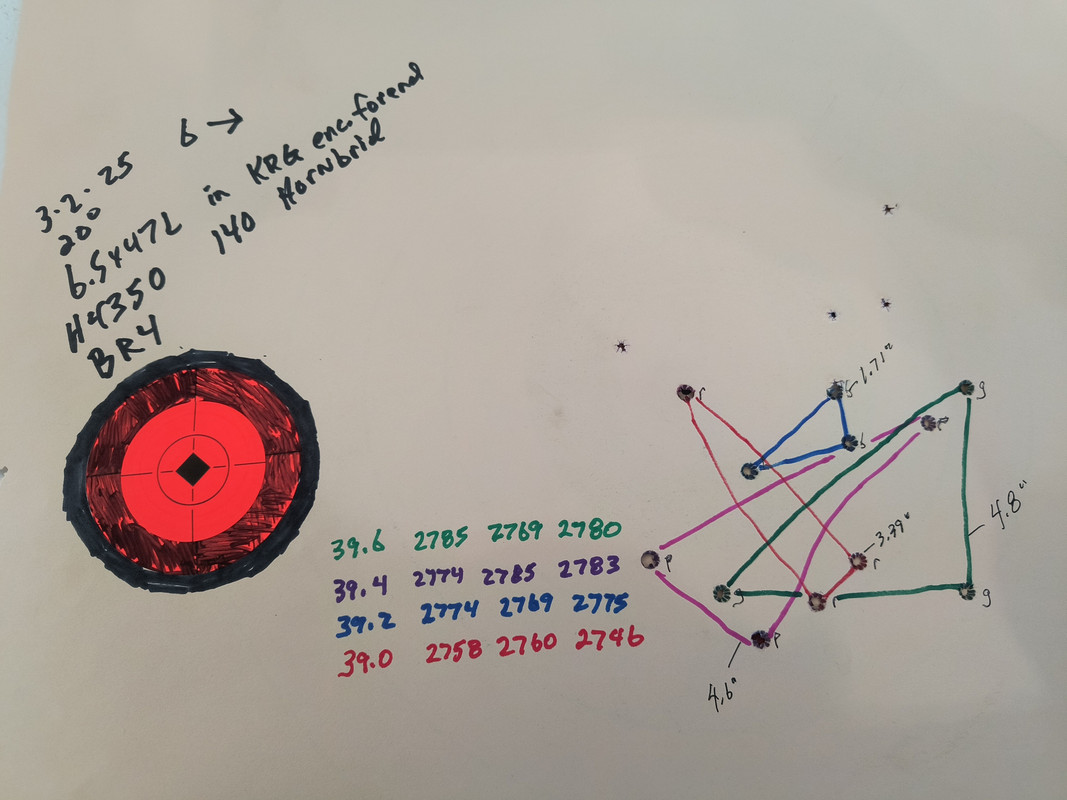 6 →
3.2.25
200
6.5x47L in KRG enc. forend
H4350 140 Hornbrid
BR4
39.6 2785 2769 2780
39.4 2774 2785 2783
39.2 2774 2769 2775
39.0 2758 2760 2746
r
b 1.71"
g
p
b
4.8"
3.39"
r
p
g
r
g
p
4.6"